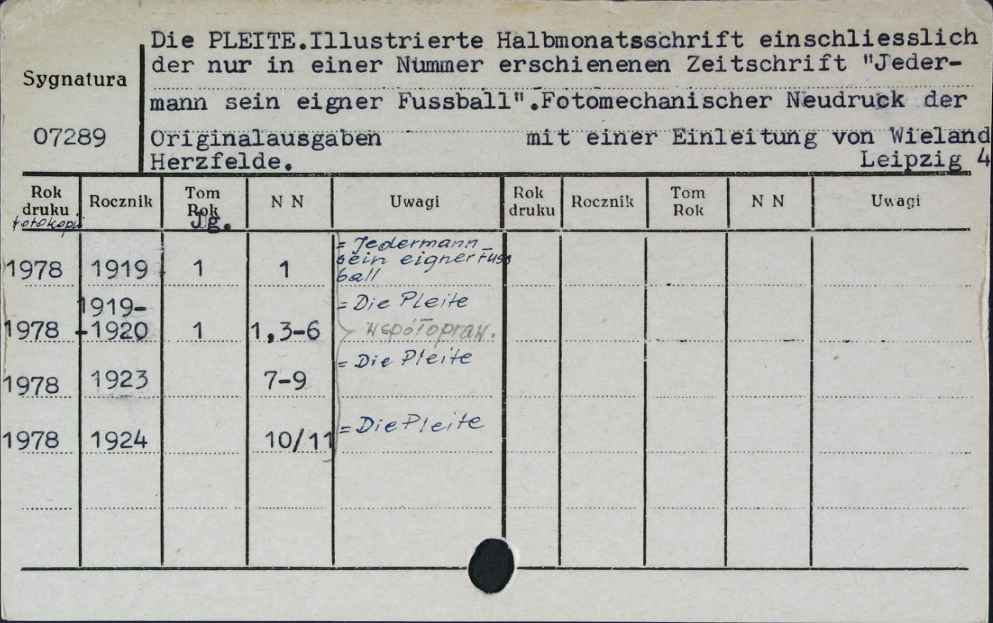 Die PLEITE.Illustrierte Halbmonatsschrift einschliesslich
der nur in einer Nummer erschienenen Zeitschrift "Jeder-
mann sein eigner Fussball".Fotomechanischer Neudruck der
Originalausgaben mit einer Einleitung von Wieland
Herzfelde. Leipzig 4
Sygnatura
07289
Rok druku fotokopii Rocznik Tom Rok Jg. N N Uwagi Rok druku Rocznik Tom Rok N N Uwagi
1978 1919 1 1 = Jedermann sein eigner Fussball
1978 1919-1920 1 1,3-6 = Die Pleite
współopraw.
1978 1923 7-9 = Die Pleite
1978 1924 10/11 = Die Pleite